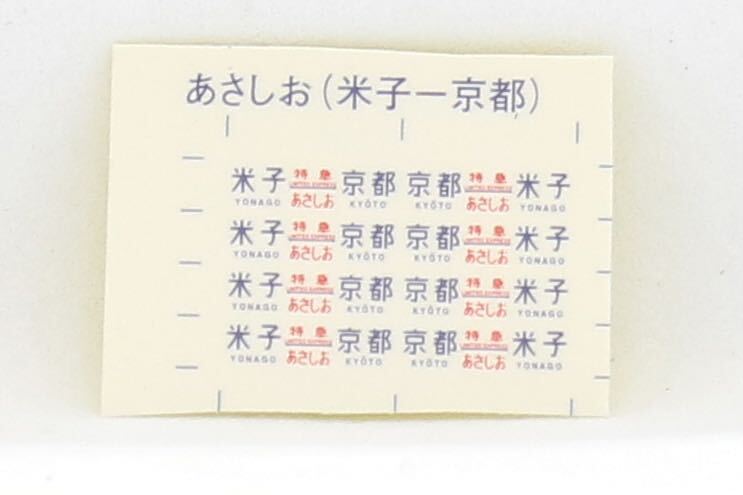 あさしお(米子ー京都)
米子 特急 LIMITED EXPRESS あさしお 京都 京都 特急 LIMITED EXPRESS あさしお 米子
YONAGO KYŌTO KYŌTO YONAGO
米子 特急 LIMITED EXPRESS あさしお 京都 京都 特急 LIMITED EXPRESS あさしお 米子
YONAGO KYŌTO KYŌTO YONAGO
米子 特急 LIMITED EXPRESS あさしお 京都 京都 特急 LIMITED EXPRESS あさしお 米子
YONAGO KYŌTO KYŌTO YONAGO
米子 特急 LIMITED EXPRESS あさしお 京都 京都 特急 LIMITED EXPRESS あさしお 米子
YONAGO KYŌTO KYŌTO YONAGO